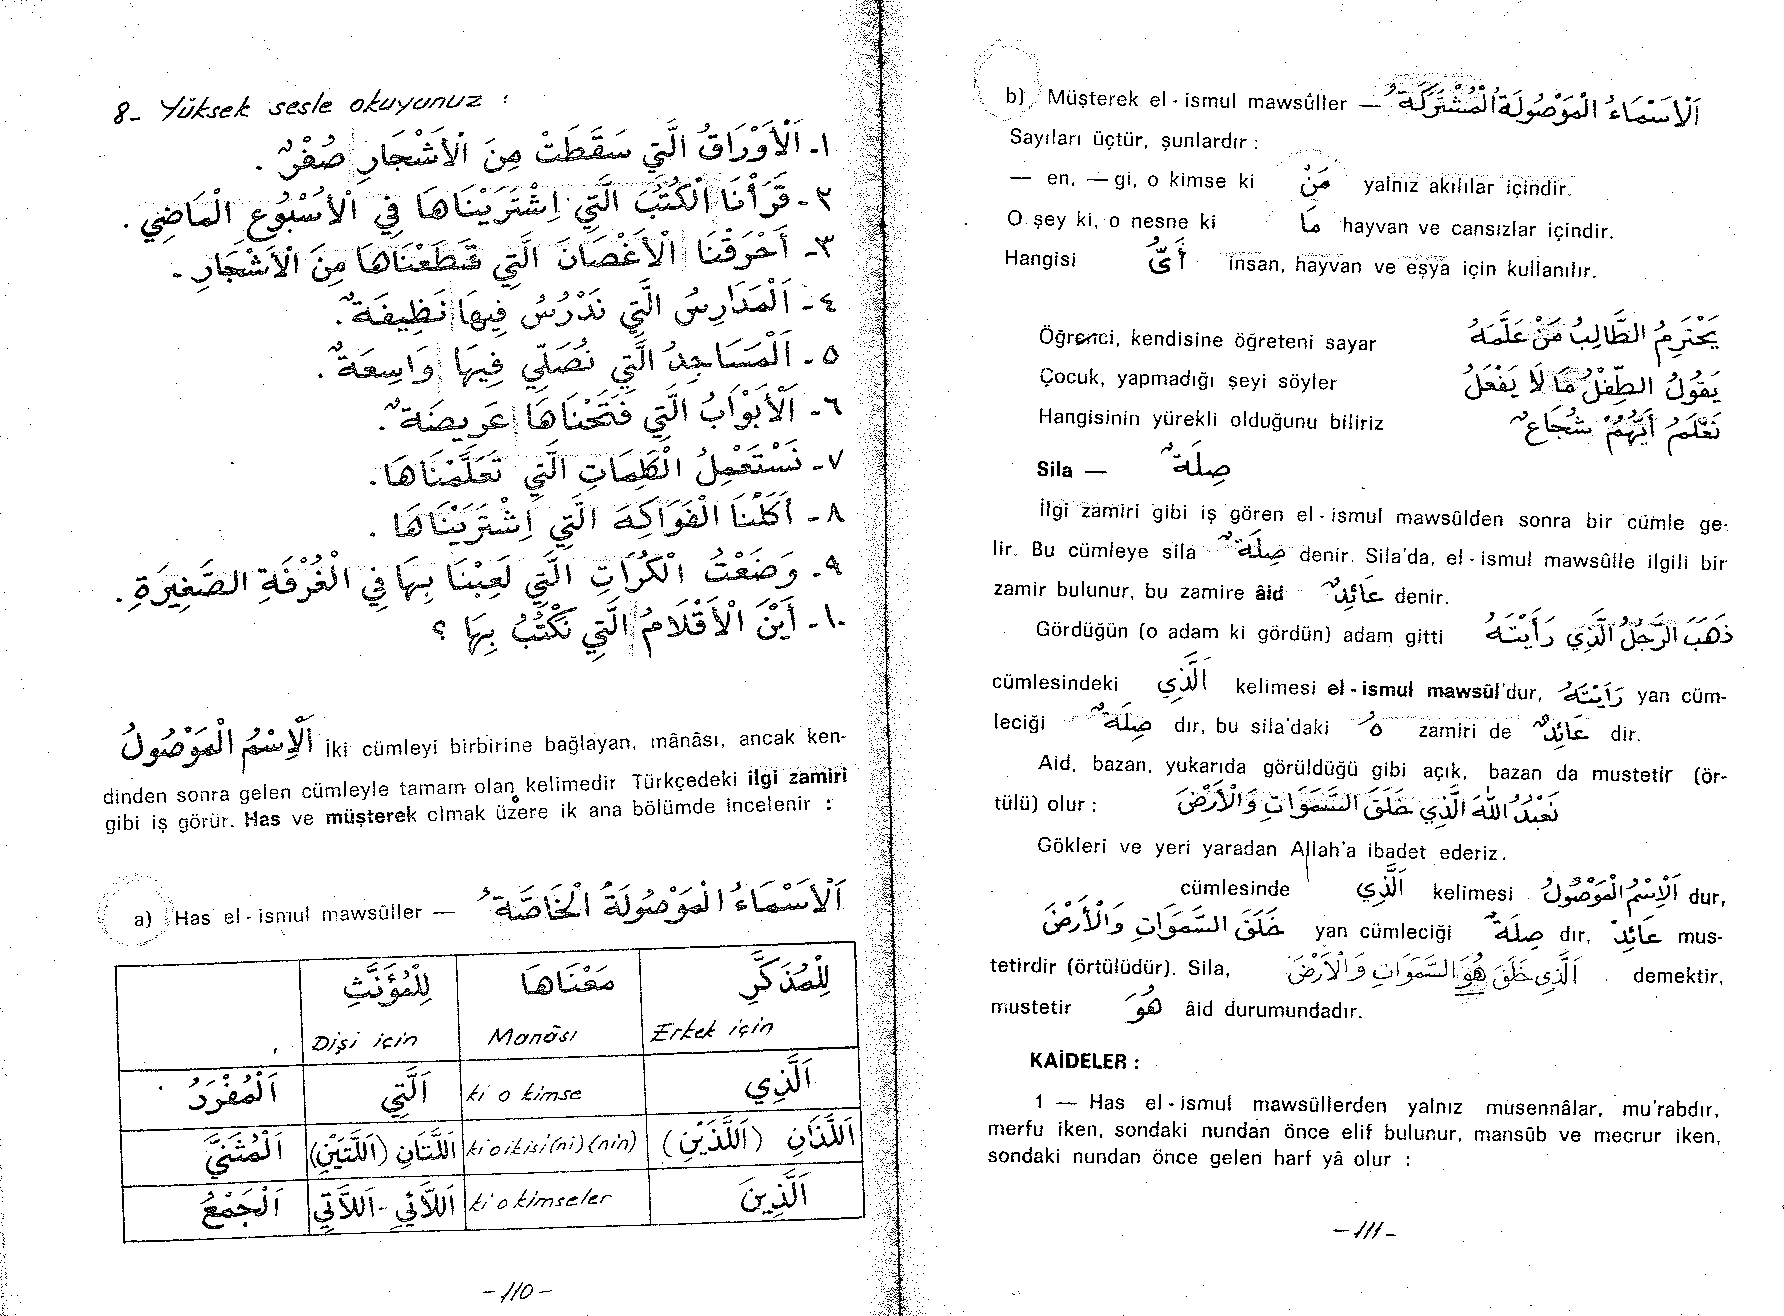 8- Yüksek sesle okuyunuz :
١- اَلْأَوْرَاقُ الَّتِي سَقَطَتْ مِنَ الْأَشْجَارِ صُفْرٌ .
٢- قَرَأْنَا الْكُتُبَ الَّتِي اِشْتَرَيْنَاهَا فِي الْأُسْبُوعِ الْمَاضِي .
٣- أَحْرَقْنَا الْأَغْصَانَ الَّتِي قَطَعْنَاهَا مِنَ الْأَشْجَارِ .
٤- اَلْمَدَارِسُ الَّتِي نَدْرُسُ فِيهَا نَظِيفَةٌ .
٥- اَلْمَسَاجِدُ الَّتِي نُصَلِّي فِيهَا وَاسِعَةٌ .
٦- اَلْأَبْوَابُ الَّتِي فَتَحْنَاهَا عَرِيضَةٌ .
٧- نَسْتَعْمِلُ الْكَلِمَاتِ الَّتِي تَعَلَّمْنَاهَا .
٨- أَكَلْنَا الْفَوَاكِهَ الَّتِي اِشْتَرَيْنَاهَا .
٩- وَضَعْتُ الْكُرَاتِ الَّتِي لَعِبْنَا بِهَا فِي الْغُرْفَةِ الصَّغِيرَةِ .
١٠- أَيْنَ الْأَقْلَامُ الَّتِي نَكْتُبُ بِهَا ؟
اَلْاِسْمُ الْمَوْصُولُ iki cümleyi birbirine bağlayan, mânâsı, ancak ken-
dinden sonra gelen cümleyle tamam olan kelimedir Türkçedeki ilgi zamiri
gibi iş görür. Has ve müşterek olmak üzere ik ana bölümde incelenir :
a) Has el-ismul mawsûller — اَلْاَسْمَاءُ الْمَوْصُولَةُ الْخَاصَّةُ
لِلْمُؤَنَّثِ مَعْنَاهَا لِلْمُذَكَّرِ
Dişi için Manâsı Erkek için
اَلْمُفْرَدُ اَلَّتِي ki o kimse اَلَّذِي
اَلْمُثَنَّى اَللَّتَانِ (اَللَّتَيْنِ) ki o ikisi(ni)(nin) اَللَّذَانِ (اَللَّذَيْنِ)
اَلْجَمْعُ اَللَّائِي - اَللَّاتِي ki o kimseler اَلَّذِينَ
-110-
b) Müşterek el-ismul mawsûller — اَلْاَسْمَاءُ الْمَوْصُولَةُ الْمُشْتَرَكَةُ
Sayıları üçtür, şunlardır :
— en, — gi, o kimse ki مَنْ yalnız akıllılar içindir.
O şey ki, o nesne ki مَا hayvan ve cansızlar içindir.
Hangisi أَيُّ insan, hayvan ve eşya için kullanılır.
Öğrenci, kendisine öğreteni sayar يَحْتَرِمُ الطَّالِبُ مَنْ عَلَّمَهُ
Çocuk, yapmadığı şeyi söyler يَقُولُ الطِّفْلُ مَا لَا يَفْعَلُ
Hangisinin yürekli olduğunu biliriz نَعْلَمُ أَيُّهُمْ شُجَاعٌ
Sila — صِلَةٌ
İlgi zamiri gibi iş gören el-ismul mawsûlden sonra bir cümle ge-
lir. Bu cümleye sila صِلَةٌ denir. Sila'da, el-ismul mawsûlle ilgili bir
zamir bulunur, bu zamire âid عَائِدٌ denir.
Gördüğün (o adam ki gördün) adam gitti ذَهَبَ الرَّجُلُ الَّذِي رَأَيْتَهُ
cümlesindeki اَلَّذِي kelimesi el-ismul mawsûl'dur, رَأَيْتَهُ yan cüm-
leciği صِلَةٌ dır, bu sila'daki هُ zamiri de عَائِدٌ dir.
Aid, bazan, yukarıda görüldüğü gibi açık, bazan da mustetir (ör-
tülü) olur : نَعْبُدُ اللّٰهَ الَّذِي خَلَقَ السَّمَوَاتِ وَالْأَرْضَ
Gökleri ve yeri yaradan Allah'a ibadet ederiz.
cümlesinde اَلَّذِي kelimesi اَلْاِسْمُ الْمَوْصُولُ dur,
خَلَقَ السَّمَوَاتِ وَالْأَرْضَ yan cümleciği صِلَةٌ dır, عَائِدٌ mus-
tetirdir (örtülüdür). Sila, اَلَّذِي خَلَقَ هُوَ السَّمَوَاتِ وَالْأَرْضَ demektir,
mustetir هُوَ âid durumundadır.
KAİDELER :
1 — Has el-ismul mawsûllerden yalnız musennâlar, mu'rabdır,
merfu iken, sondaki nundan önce elif bulunur, mansûb ve mecrur iken,
sondaki nundan önce gelen harf yâ olur :
-111-